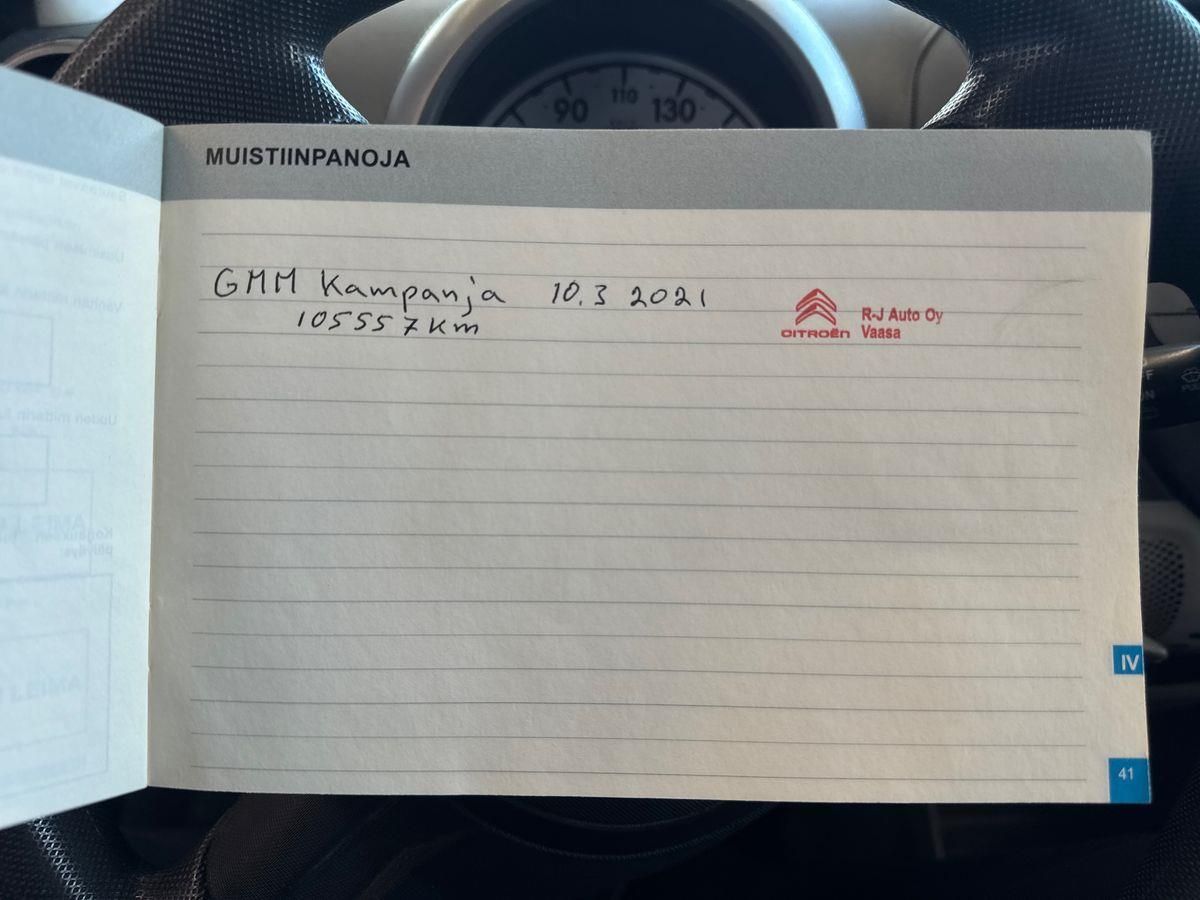 90 110 130
MUISTIINPANOJA
GMM Kampanja 10.3 2021
105557 km
CITROËN
R-J Auto Oy
Vaasa
IV
41